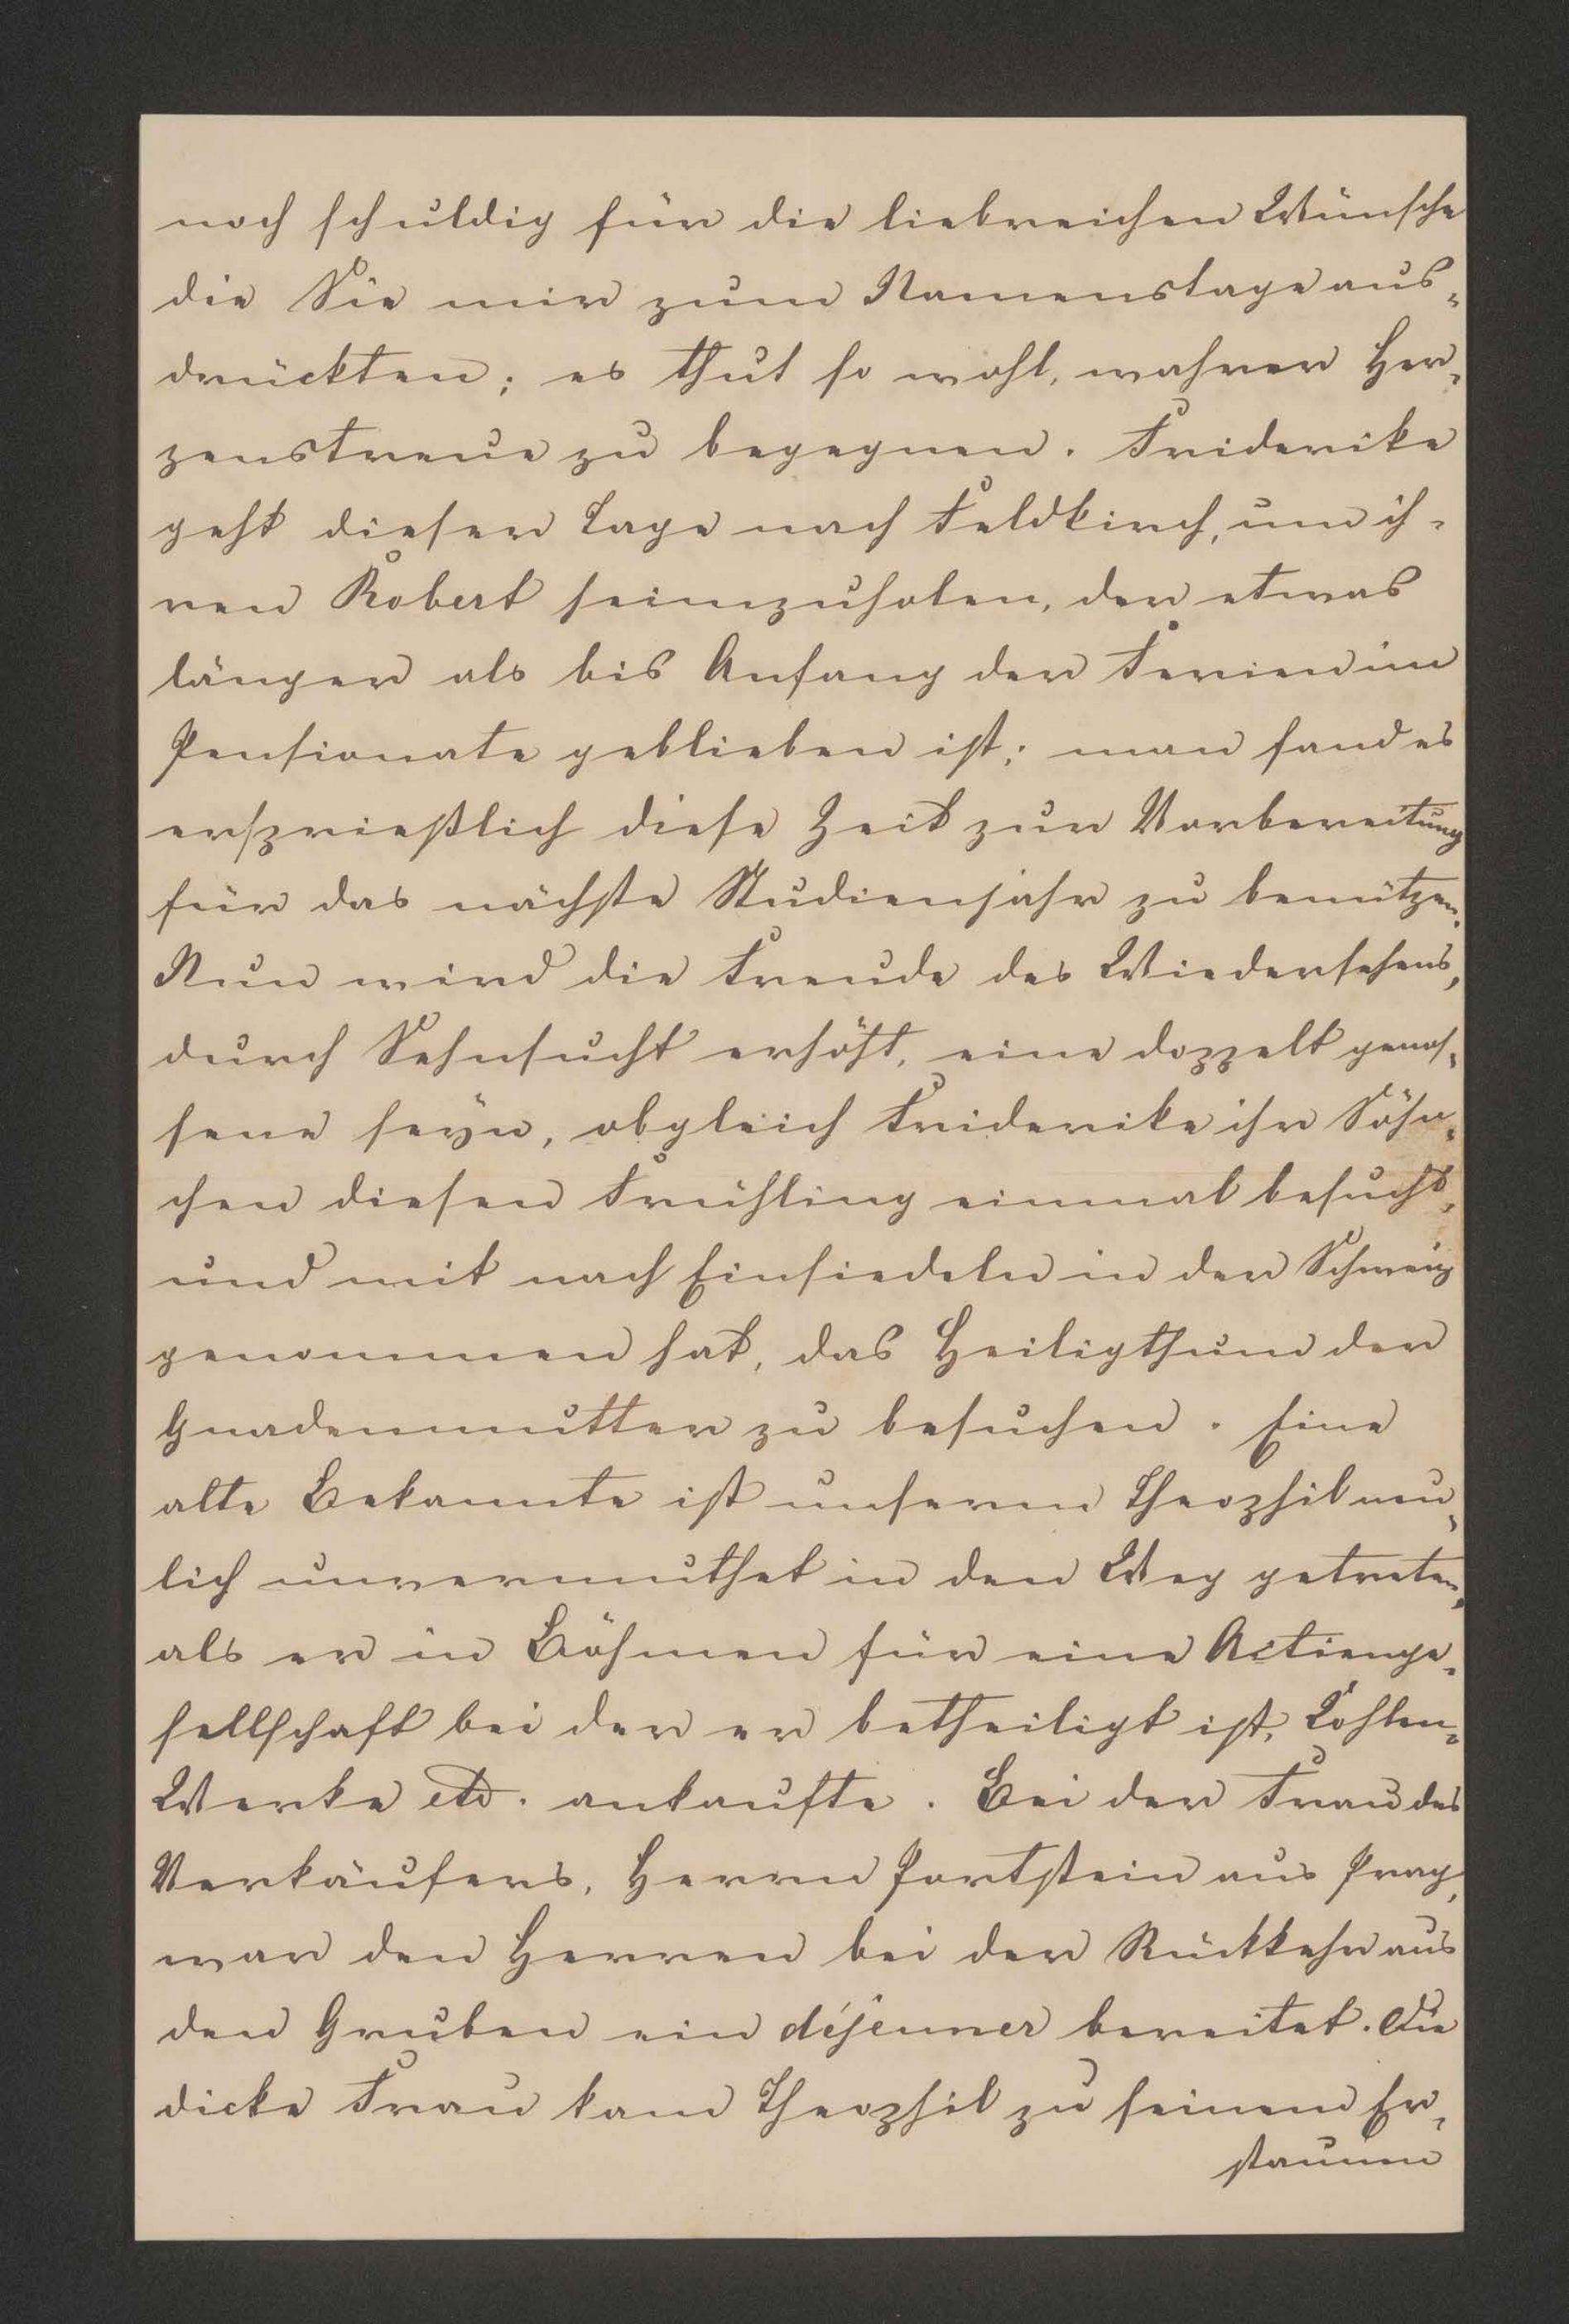 noch schuldig für die liebreichen Wünsche
die Sie mir zum Namenstage aus-
drückten; es thut so wohl, wahrer Her-
zenstreue zu begegnen. Friderike
geht dieser Tage nach Feldkirch, um ih-
ren Robert heimzuholen, der etwas
länger als bis Anfang der Ferien im
Pensionate geblieben ist; man fand es
ersprießlich diese Zeit zur Vorbereitung
für das nächste Studienjahr zu benützen.
Nun wird die Freude des Wiedersehens,
durch Sehnsucht erhöht, eine doppelt genos-
sene seyn, obgleich Friderike ihr Söhn-
chen diesen Frühling einmal besucht,
und mit nach Einsiedeln in der Schweiz
genommen hat, das Heiligthum der
Gnadenmutter zu besuchen. Eine
alte Bekannte ist unserem Theophil neu-
lich unvermuthet in den Weg getreten,
als er in Böhmen für eine Actienge-
sellschaft bei der er betheiligt ist, Kohlen-
Werke etc. ankaufte. Bei der Frau des
Verkäufers, Herrn Portstein aus Prag,
war den Herren bei der Rückkehr aus
den Gruben ein déjeuner bereitet. Die
dicke Frau kam Theophil zu seinem Er-
staunen